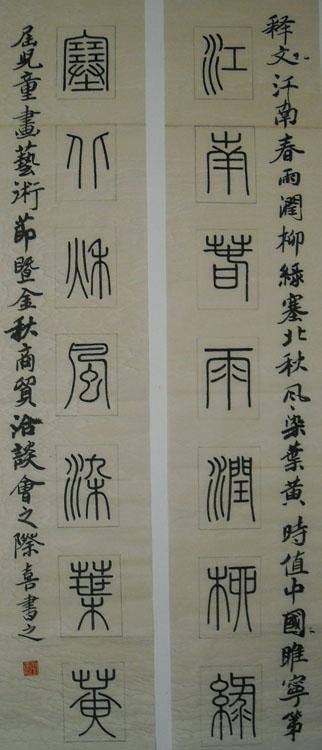 释文:江南春雨潤柳綠塞北秋风染葉黄時值中國睢寧第
江南春雨潤柳綠
塞北秋風染葉黄
届兒童畫藝術節暨金秋商貿洽談會之際喜書之